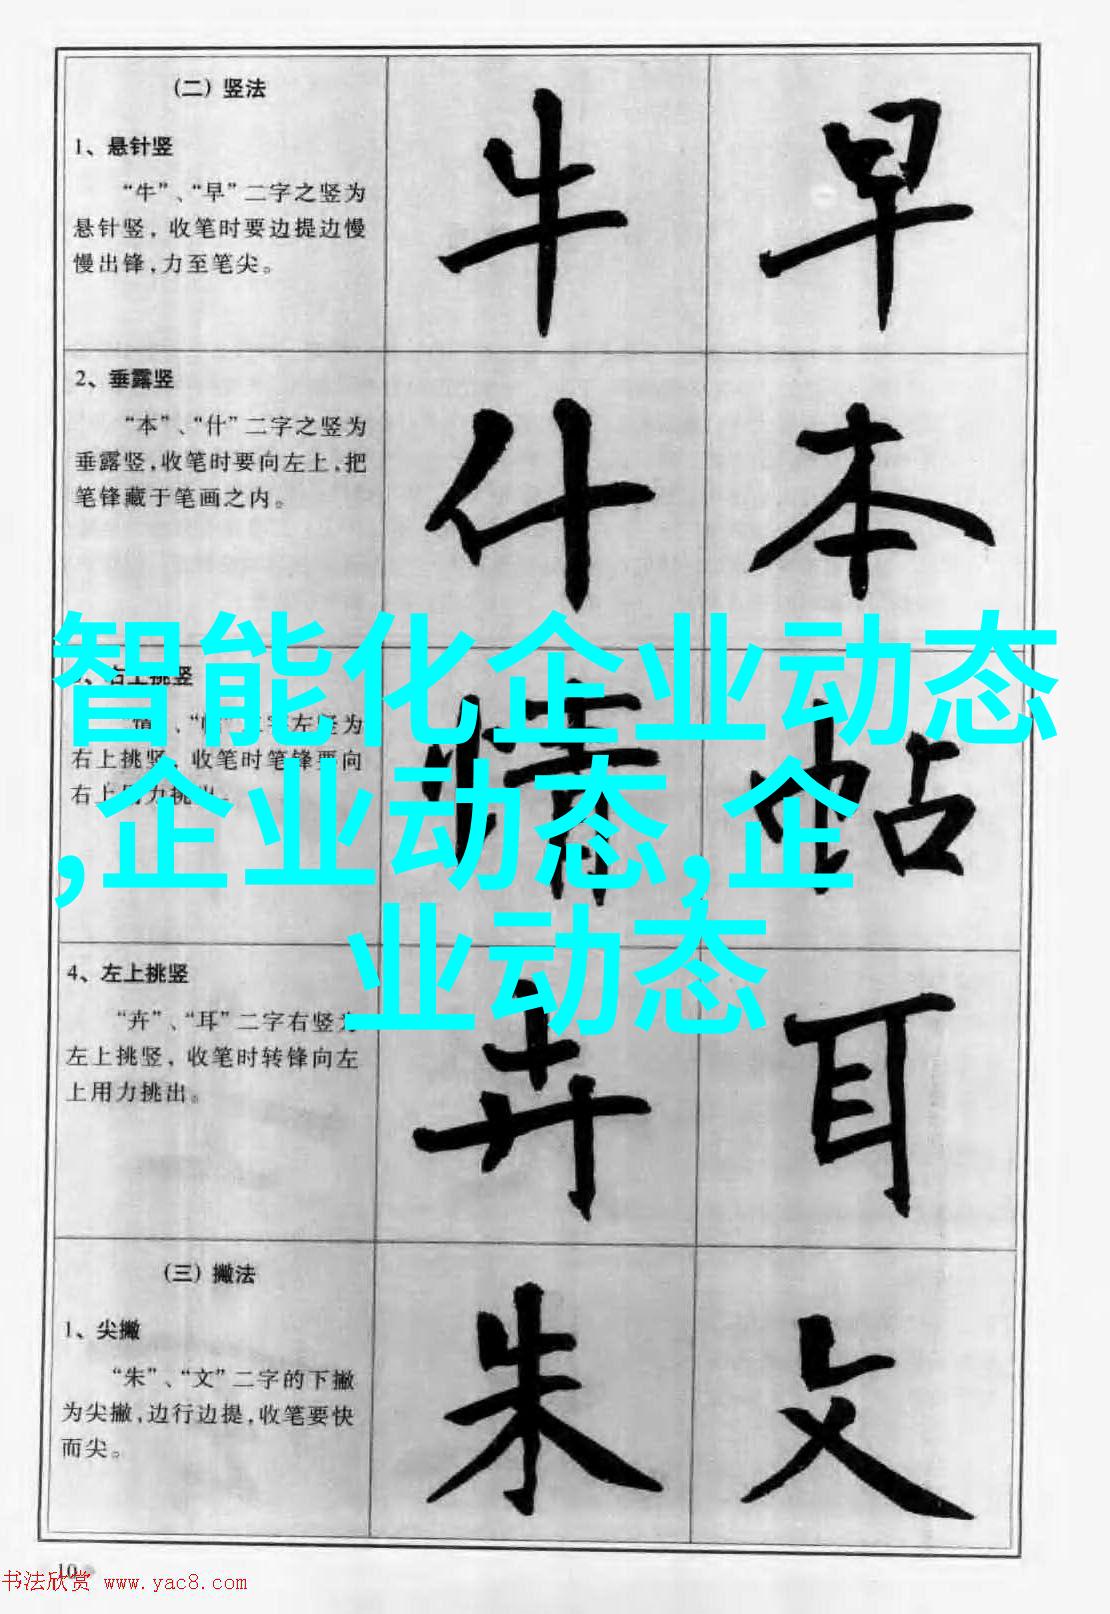 （二）竖法
牛
早
1、悬针竖
“牛”、“早”二字之竖为
悬针竖，收笔时要边提边慢
慢出锋，力至笔尖。
2、垂露竖
什
本
“本”、“什”二字之竖为
垂露竖，收笔时要向左上，把
笔锋藏于笔画之内。
智能化企业动态
,企业动态,企
业动态
右上挑竖
情
帖
二字左竖为
右上挑竖，收笔时笔锋要向
右上用力挑出。
4、左上挑竖
卉
耳
“卉”、“耳”二字右竖为
左上挑竖，收笔时转锋向左
上用力挑出。
（三）撇法
朱
文
1、尖撇
“朱”、“文”二字的下撇
为尖撇，边行边提，收笔要快
而尖。
10
书法欣赏 www.yac8.com